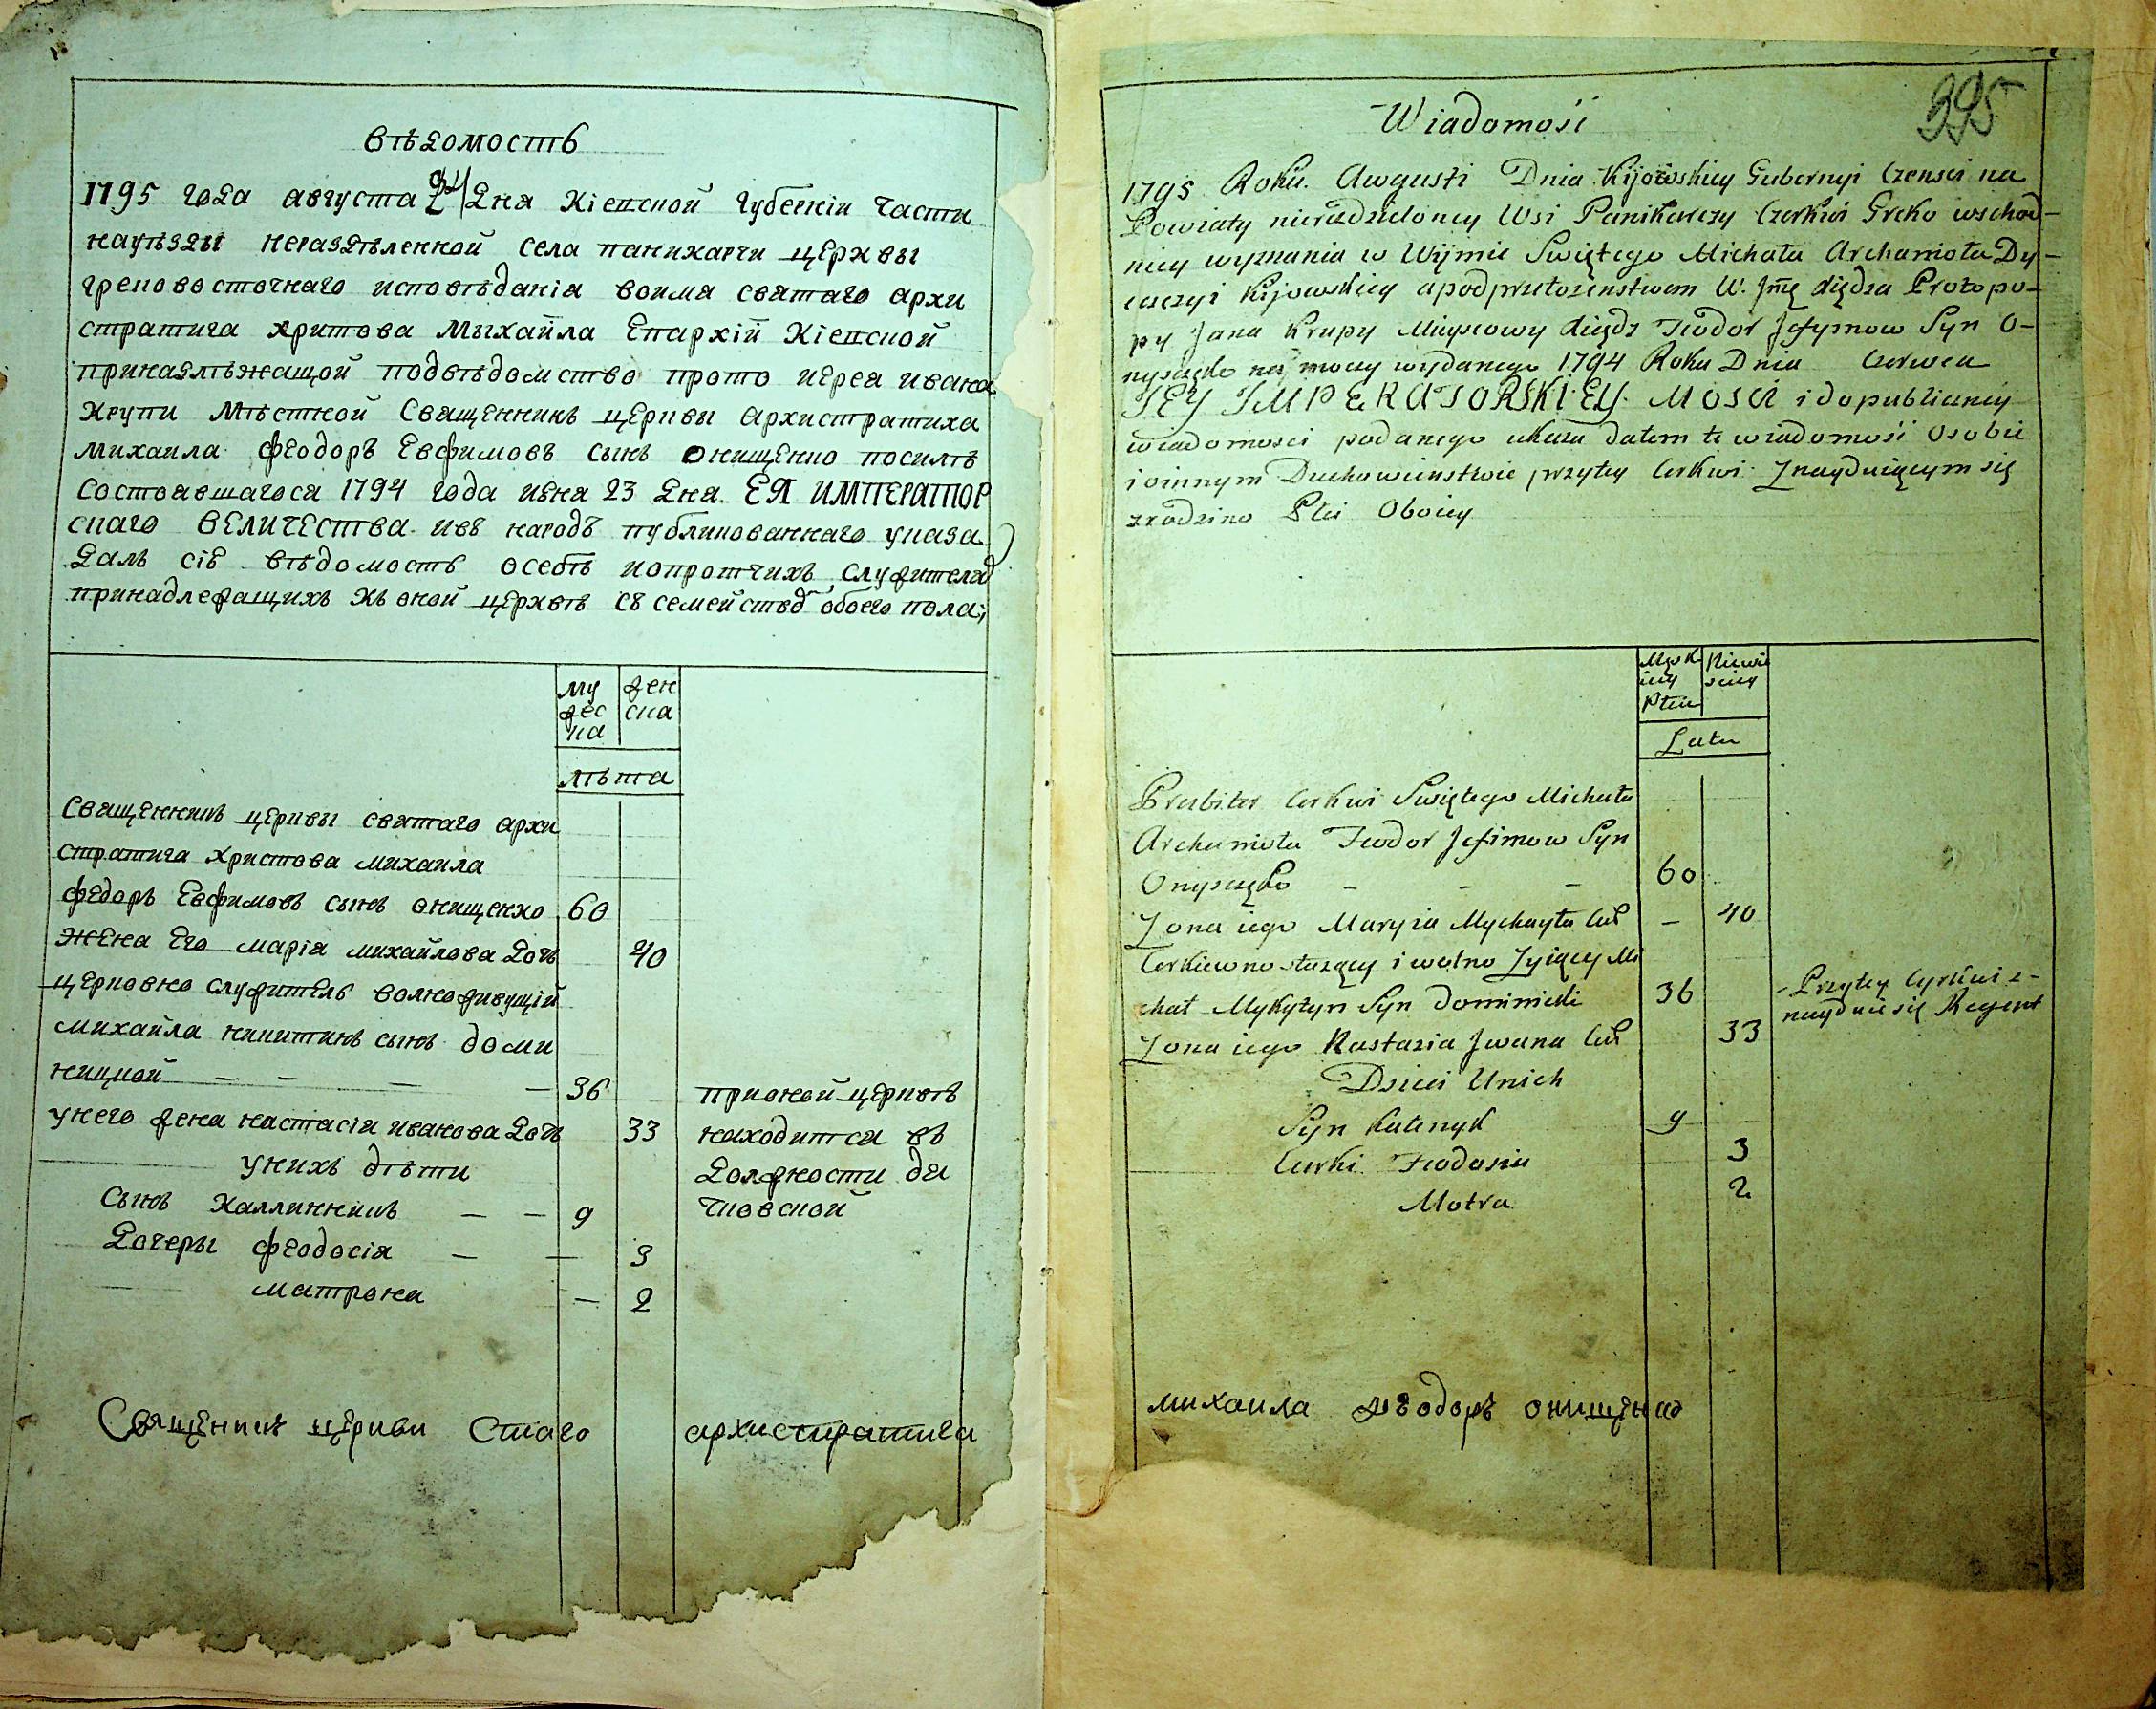 Вѣдомость
1795 года августа дня Кіевской губерніи части
науѣзды неразделенной села паникарчи церквы
грековосточнаго исповѣданія воимя святаго архи
стратига хритова Мыхайла Епархій Кіевской
принадлѣжащой подвѣдомство прото иереа ивана
Крупи Мѣстной Священникъ церквы архистратиха
Михаила феодоръ Евфимовъ сынъ Онищенко посилѣ
состоавшагося 1794 года июна 23 дня ЕЯ ИМПЕРАТОР
скаго ВЕЛИЧЕСТВА ивъ народъ публикованнаго указа
Далъ сіе вѣдомость осебѣ ипопротчихъ служителяъ
принадлежащихъ къ оной церквѣ съ семейством обоего пола;
му
жес
ка
жен
ска
лѣта
Священникъ церквы святаго архи
стратига христова михаила
федоръ Евфимовъ сынъ онищенко 60
жена Его марія михайлова дочь 40
церковно служитель волножывущій
михайла никитинъ сынъ доми
ницкой — — — — 36
унего жена настасія иванова дочь 33
унихъ дѣти
сынъ Каллинникъ — — 9
дочеры феодосія — — 3
матрона — 2
прионой церквѣ
находитса въ
должности дя
чковской
Священникъ церкви Стаго архистратига
995
Wiadomość
1795 Roku. Awgusti Dnia Kijowskiey Gubernyi Czensci na
Powiaty nierozdzieloney Wsi Panikarczy Czerkwi Greko wschod-
niey wyznania w Wijmie Swiętego Michała Archanioła Dy-
ecezyi Kijowskiey apodprzełozenstwem W. Jmę Xiędza Protopo-
py Jana Krupy Mieyscowy Xiądz Teodor Jefymow Syn O-
nyszczęko na moczy wydanego 1794 Roku Dnia Czerwca
JEY IMPERATORSKIEY MOSCI i dopubliczney
wiadomosci podanego ukazu dałem tę wiadomość Osobie
i oinnym Duchowienstwie przytey Cerkwi Znayduiącym się
zrodzino Płci Oboiey
Męsk
iey
Płci
Niewie
sciey
Lata
Prezbiter Cerkwi Swiętego Michała
Archanioła Teodor Jefimow Syn
Onyszczęko - - - 60
Zona iego Maryia Mychayła Cur — 40
Cerkiewno-służący i wolno Zyiący Mi
chał Mykytyn Syn Dominicki 36
Zona iego Nastazia Jwana Cur 33
Dzieci Unich
Syn Kalenyk 9
Curki Teodosia 3
Motra 2
- Przytey Cyrkwi z-
nayduie się Regent
михаила феодоръ онищенко